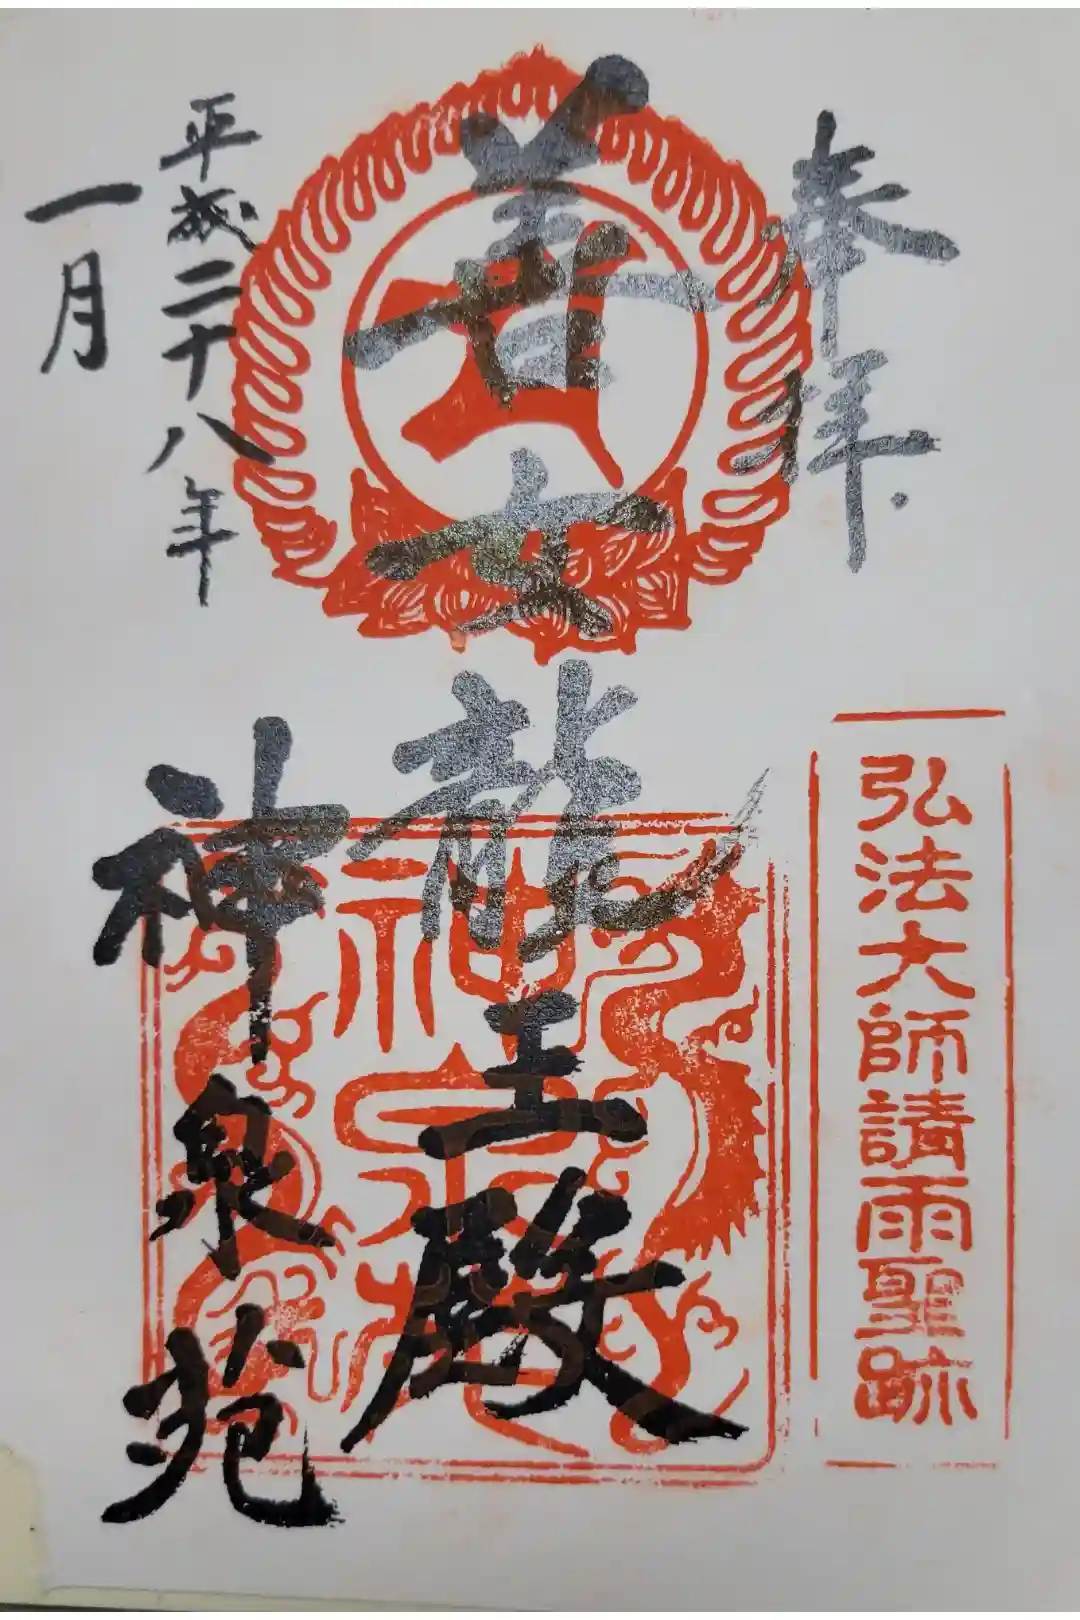 奉拝
弘法大師請雨聖跡
善女龍王殿
平成二十八年
一月
神泉苑
神泉苑